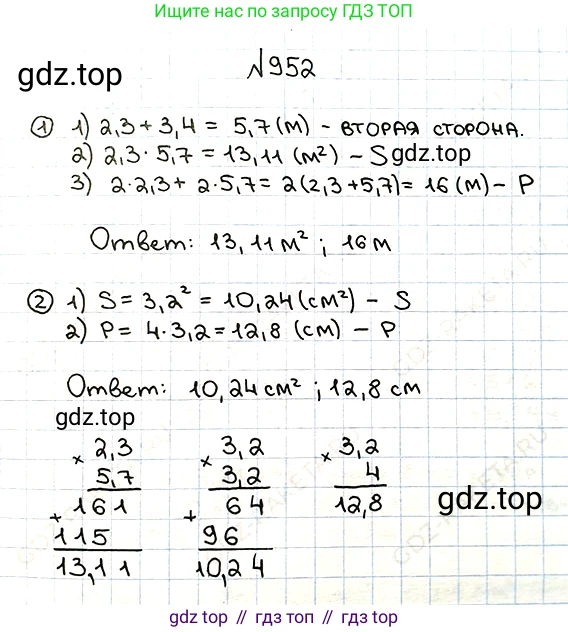 больше решебников по запросу ГДЗ ТОП
gdz.top
№952
① 1) 2,3 + 3,4 = 5,7 (м) - вторая сторона.
2) 2,3 · 5,7 = 13,11 (м²) - S gdz.top
3) 2·2,3 + 2·5,7 = 2(2,3+5,7) = 16 (м) - P
Ответ: 13,11 м² ; 16 м
② 1) S = 3,2² = 10,24 (см²) - S
2) P = 4·3,2 = 12,8 (см) - P
Ответ: 10,24 см² ; 12,8 см
gdz.top
× 2,3 × 3,2 × 3,2
5,7 3,2 4
+ 161 + 64 12,8
115 96
13,11 10,24
gdz.top
gdz.top // гдз топ // гдз.топ